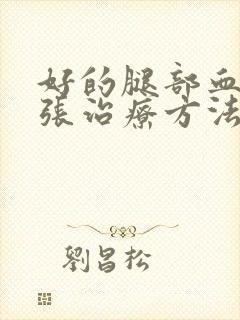 好的腿部血
张治疗方法
劉昌松